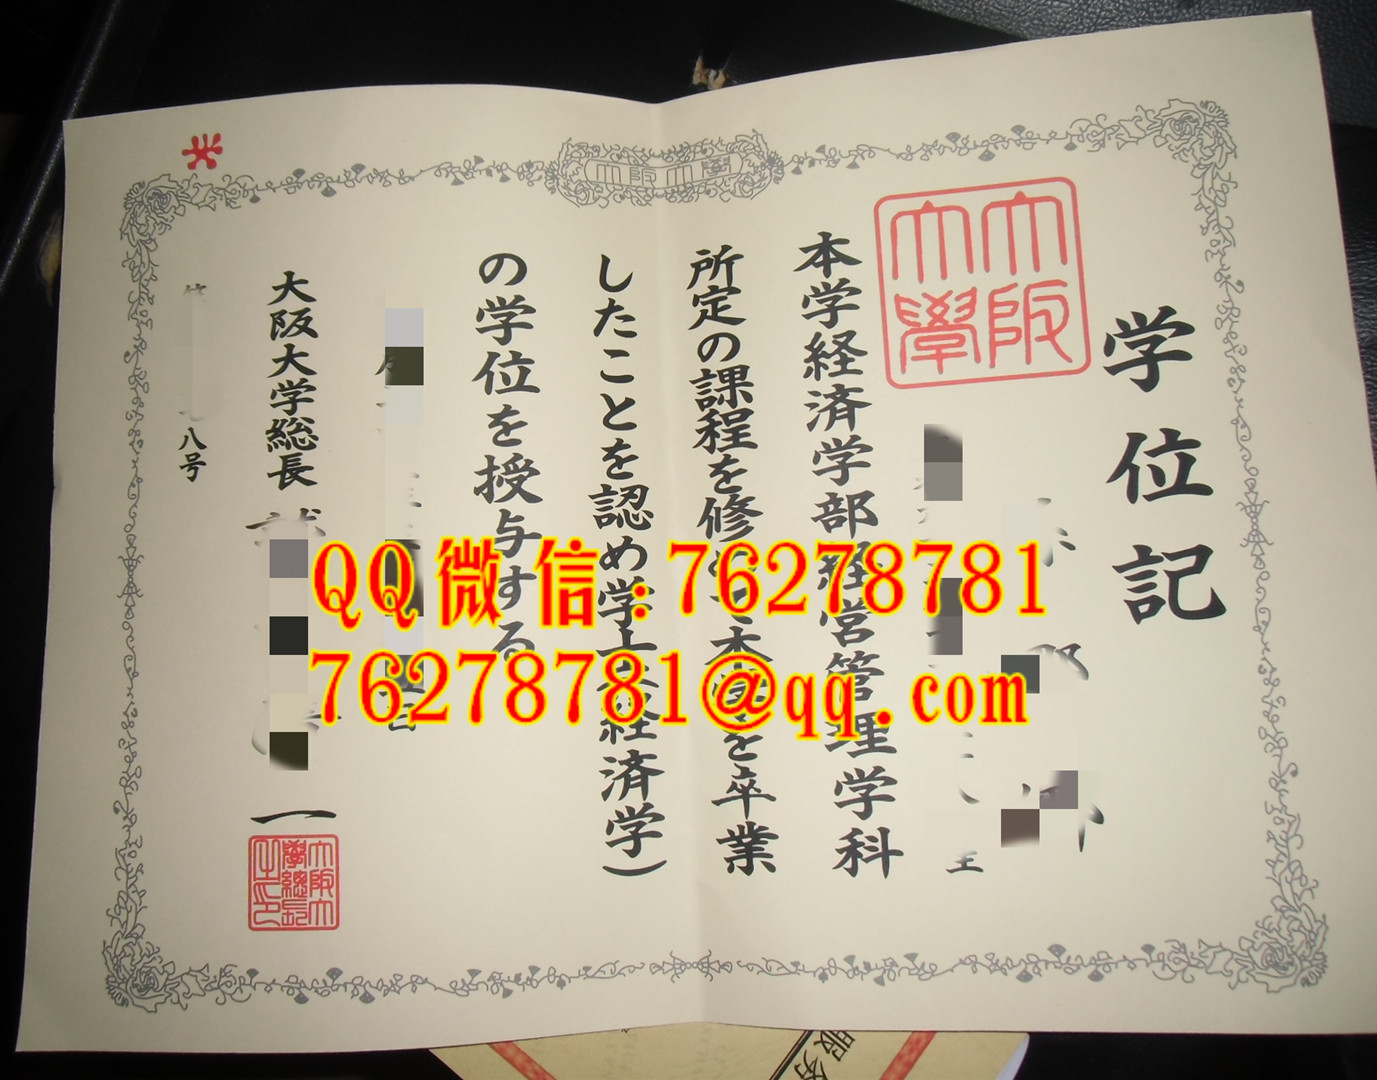 学位記
大阪大学
本学経済学部経営管理学科
所定の課程を修め本学を卒業
したことを認め学士(経済学)
の学位を授与する
大阪大学総長
一
八号
大阪大學
QQ微信:76278781
76278781@qq.com